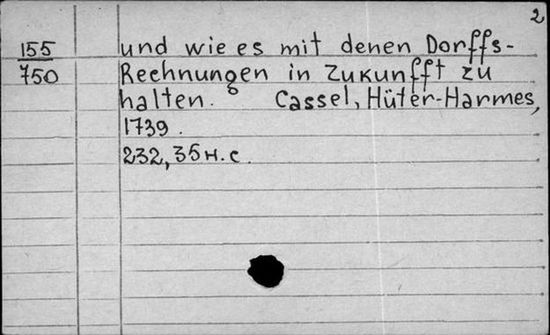 2
155 und wie es mit denen Dorffs-
750 Rechnungen in Zukunfft zu
halten. Cassel, Hüter-Harmes,
1739.
232, 35 н. с.